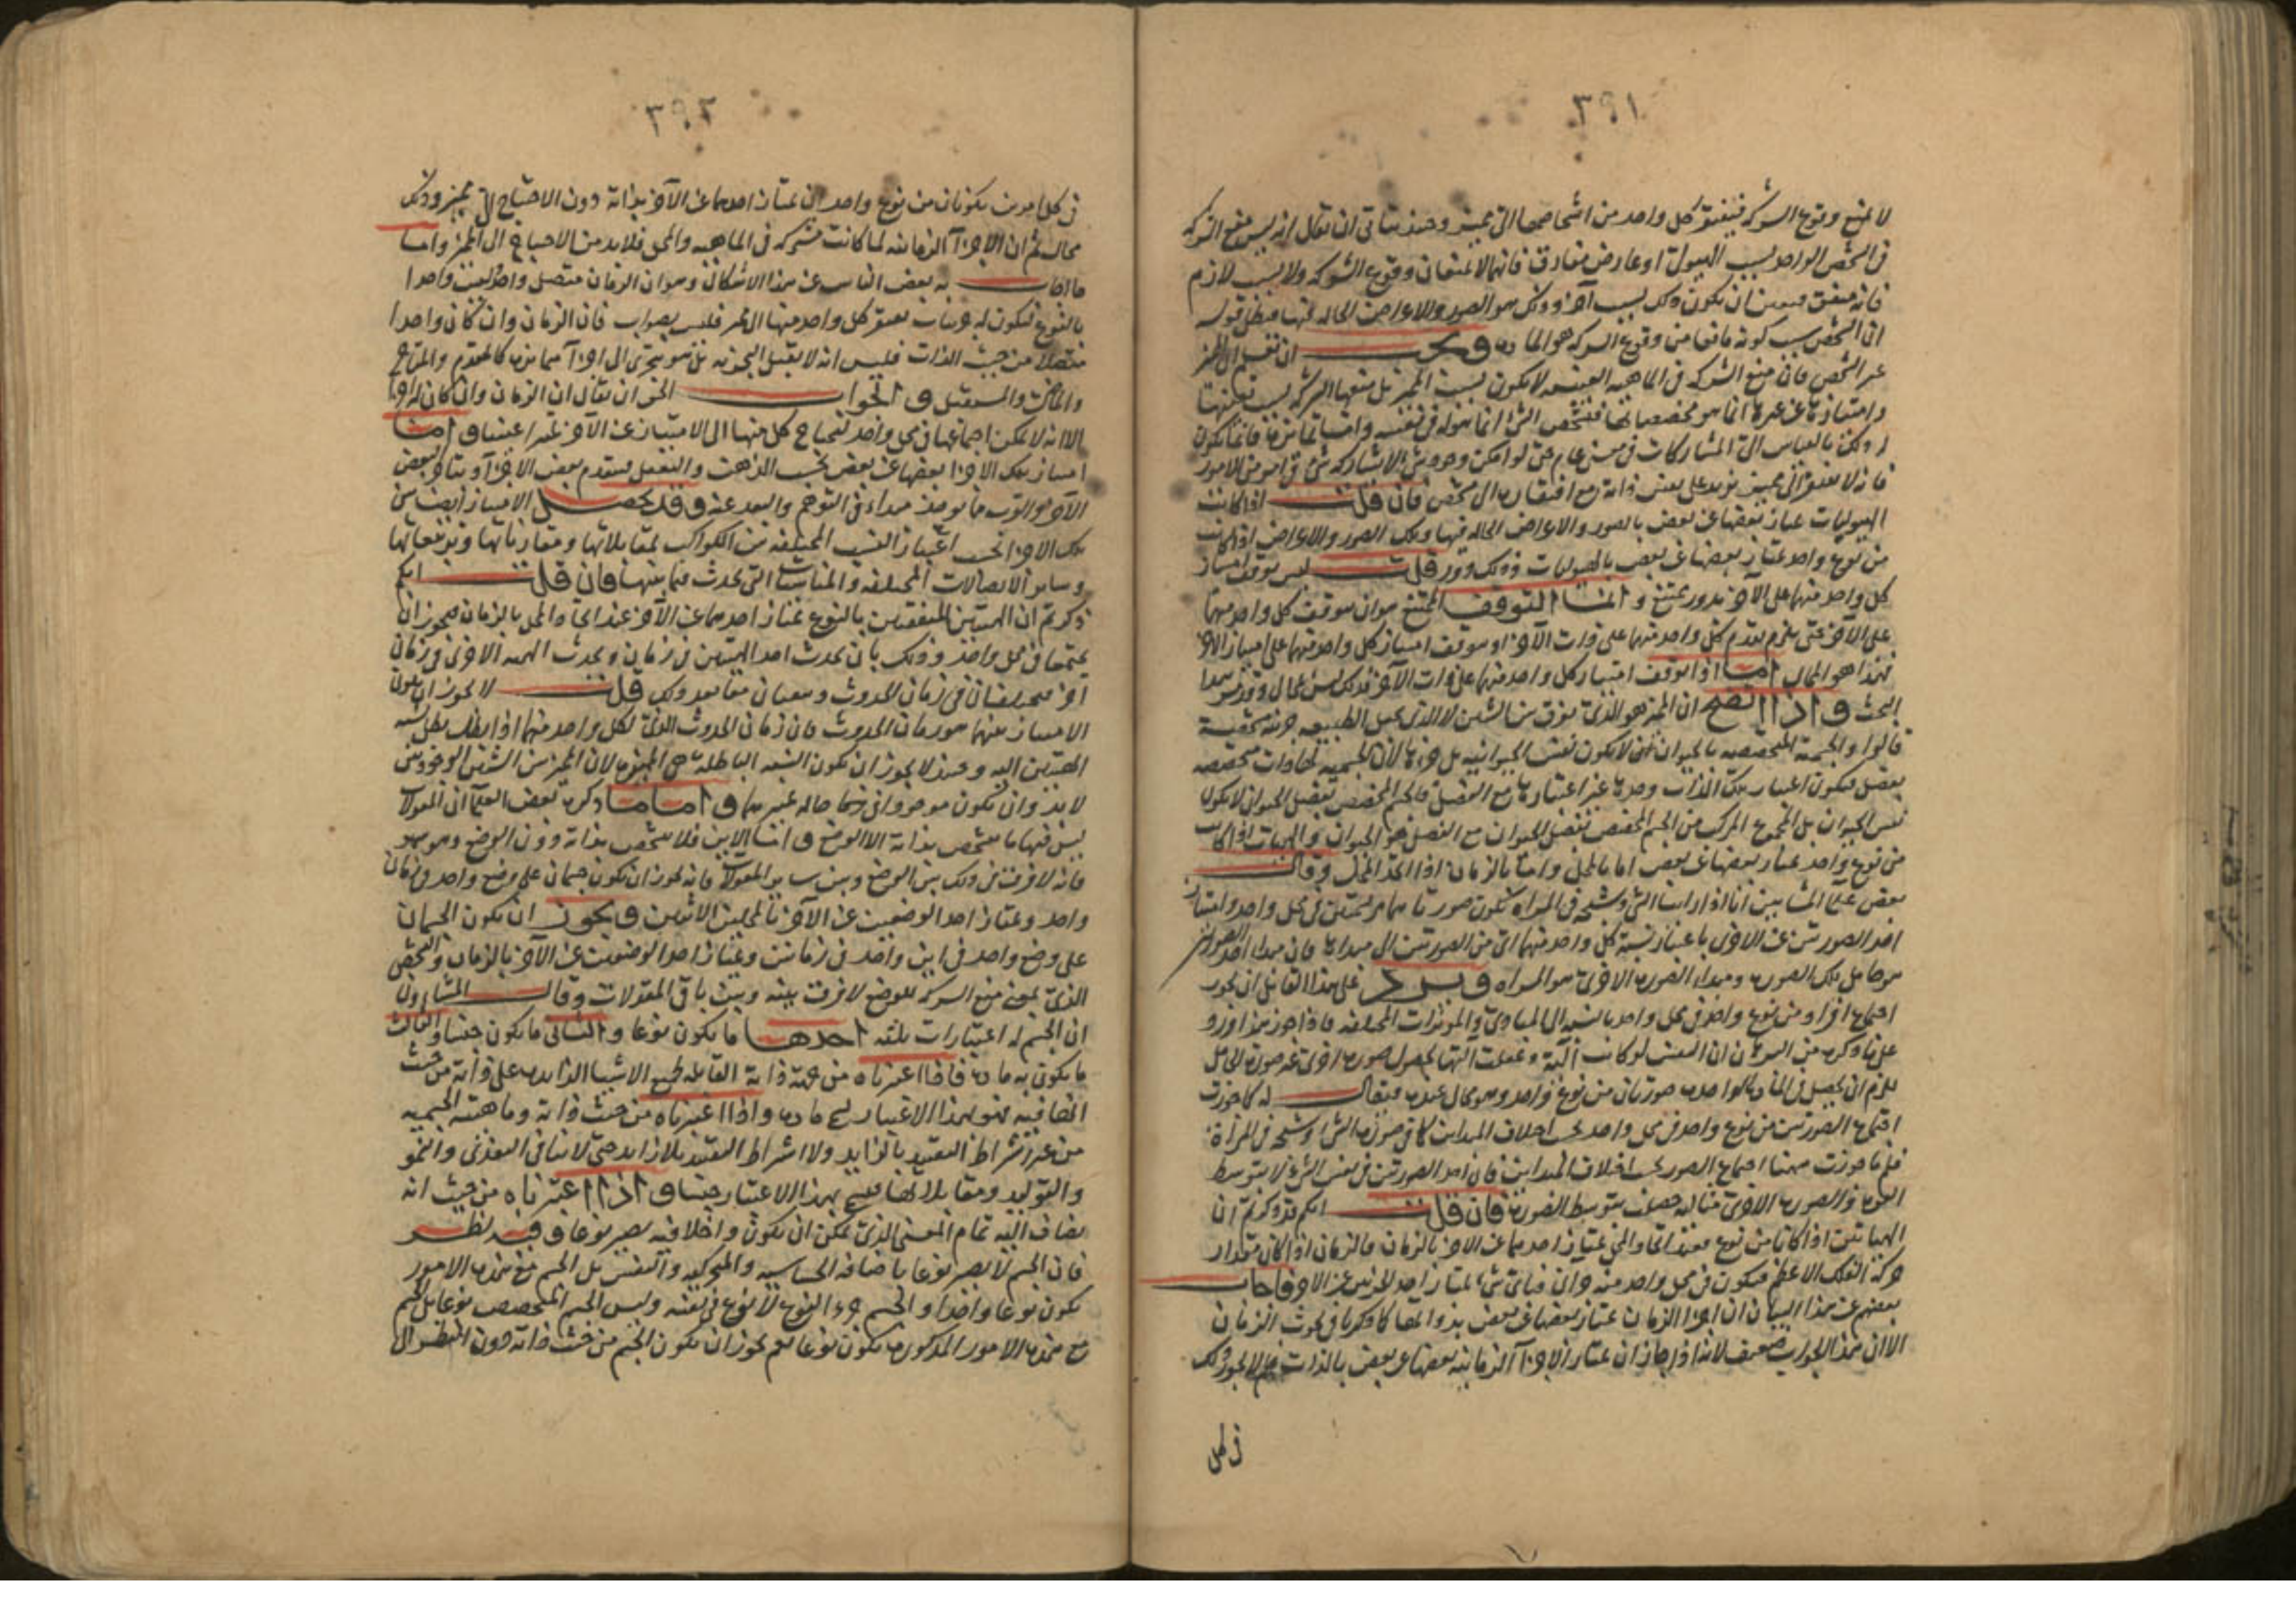 ٣٩١
لا يمنع وقوع الشركة فيفتقر كل واحد من اشخاصها الى مميز وحينئذ يتأتى ان يقال انه ليس منع الشركة
فى الشخص الواحد بسبب الهيولى او عارض مفارق فانهما لا يمنعان وقوع الشركة ولا بسبب لازم
فانه متفق فيتعين ان يكون ذلك بسبب آخر وذلك هو الصور والاعراض الحالة فيها فبطل قوله
ان الشخص سبب كونه مانعا من وقوع الشركة هو المادة و ان تعلم ان المميز
غير المشخص فان منع الشركة فى الماهية العينية لا يكون بسبب المميز بل منعها الشركة بسبب
وامتيازها عن غيرها انما هو بمخصصاتها فتشخص الشئ انما هو له فى نفسه واما تمايزها فانما يكون
له ذلك بالقياس الى المشاركات فى معنى عام حتى لو امكن وجود شئ لا يشاركه شئ فى امر من الامور
فانه لا يفتقر الى مميز يزيد على نفس ذاته مع افتقاره الى مشخص فان قلت اذا كانت
الهيوليات يمتاز بعضها عن بعض بالصور والاعراض الحالة فيها وتلك الصور والاعراض اذا كانت
من نوع واحد يمتاز بعضها عن بعض بالهيوليات فذلك دور قلت ليس توقف امتياز
كل واحد منهما على الآخر بدور يمتنع وانما التوقف الممتنع هو ان يتوقف كل واحد منهما
على الآخر حتى يلزم تقدم كل واحد منهما على ذات الآخر او يتوقف امتياز كل واحد منهما على امتياز الآخر
فهذا هو المحال اما اذا توقف امتياز كل واحد منهما على ذات الآخر فذلك ليس بمحال وقد مر هذا
البحث و اذا اتضح ان المميز هو الذى يفرق بين الشيئين لا الذى يجعل الطبيعة جزئية شخصية
قالوا والجسمية المتخصصة بالحيوان لا يكون نفس الحيوانية بل جزءها لان الجسمية لها ذات متخصصة
بفصل فيكون اعتبار تلك الذات وحدها غير اعتبارها مع الفصل فالجسم المتخصص بفصل الحيوان لا يكون
نفس الحيوان بل المجموع المركب من الجسم المخصص بفصل الحيوان مع الفصل هو الحيوان والهيئات اذا كانت
من نوع واحد يمتاز بعضها عن بعض اما بالمحل واما بالزمان اذا اتحد المحل وقال
بعض علماء المشائين انا اذا رأينا الشئ وشبحه فى المرآة تكون صورتاهما مجتمعتين فى محل واحد وامتياز
احد الصورتين عن الاخرى باعتبار نسبة كل واحد منهما اى من الصورتين الى مبدأها فان مبدأ احد الصورتين
هو حامل تلك الصورة ومبدأ الصورة الاخرى هو المرآة و يرد على هذا القائل ان يجوز
اجتماع افراد من نوع واحد فى محل واحد بالنسبة الى المبادئ والمؤثرات المختلفة فاذا جوز هذا ورد
على ما ذكره من البرهان ان النفس لو كانت آلية وفعلت آلتها بحصول صورة اخرى غير صورة المحل
يلزم ان يحصل فى المادة الواحدة صورتان من نوع واحد وهو محال عنده فيقال له كما جوزت
اجتماع الصورتين من نوع واحد فى محل واحد بحسب اختلاف المبدأين كما فى صورة الشئ وشبحه فى المرآة
فلم ما جوزت ههنا اجتماع الصور بحسب اختلاف المبدأين فان احد الصورتين فى نفس الشئ لا بتوسط
الصورة والصورة الاخرى مثاله حصلت بتوسط الصورة فان قلت انكم قد ذكرتم ان
الهيأتين اذا كانتا من نوع فعند اتحاد المحل يمتاز احدهما عن الآخر بالزمان فالزمان اذا كان مقدار
حركة الفلك الاعظم فيكون فى محل واحد منه وان فبأى شئ يمتاز احد الجزئين عن الآخر فاجاب
بعضهم عن هذا البيان ان اجزاء الزمان يمتاز بعضها عن بعض بذواتها كما ذكرنا فى بحث الزمان
الا ان هذا الجواب ضعيف لانه اذا جاز ان يمتاز الاجزاء الزمانية بعضها عن بعض بالذات فلم لا يجوز ذلك
فى كل
٣٩٢
فى كل امرين يكونان من نوع واحد ان يمتاز احدهما عن الآخر بذاته دون الاحتياج الى مميز وذلك
محال ثم ان الاجزاء الزمانية لما كانت مشتركة فى الماهية والمحل فلا بد من الاحتياج الى المميز واما
ما اجاب به بعض الناس عن هذا الاشكال وهو ان الزمان متصل واحد ليس واحدا
بالنوع فيكون له جزئيات يفتقر كل واحد منها الى مميز فليس بصواب فان الزمان وان كان واحدا
متصلا من حيث الذات فليس انه لا يقبل التجزية بل هو يتجزى الى اجزاء متمايزة كالمتقدم والمتأخر
والماضى والمستقبل و الجواب الحق ان يقال ان الزمان وان كان له اجزاء
الا انه لا يمكن اجتماعها فى محل واحد لتحتاج كل منها الى الامتياز عن الآخر بمميز اعتبار و اما
امتياز تلك الاجزاء بعضها عن بعض بحسب الذهن والتعقل فبتقدم بعض الاجزاء وبتأخر البعض
الآخر والقرب ما يوجد مبدأ فى التوهم والبعد عنه وقد يحصل الامتياز ايضا بين
تلك الاجزاء بحسب اعتبار النسب المختلفة من الكواكب بمقابلاتها ومقارناتها وتربيعاتها
وسائر الاتصالات المختلفة والمناسبات التى تحدث فيما بينها فان قلت انكم
ذكرتم ان الهيئتين المتفقتين بالنوع يمتاز احدهما عن الآخر عند اتحاد المحل بالزمان فيجوز ان
يجتمعا فى محل واحد وذلك بان يحدث احد الهيئتين فى زمان ويحدث الهيئة الاخرى فى زمان
آخر فيختلفان فى زمان الحدوث ويبقيان معا بعد ذلك قلت لا يجوز ان يكون
الامتياز بينهما هو زمان الحدوث فان زمان الحدوث الذى لكل واحد منهما اذا بطل بطل نسبة
الهيئتين اليه وعندئذ لا يجوز ان يكون النسبة الباطلة هى المميزة لان المميز بين الشيئين الموجودين
لا بد وان يكون موجودا فى زمان حالة تميزهما و اما ما ذكره بعض العلماء ان المقولات
ليس فيها ما يتشخص بذاته الا الوضع و اما الاين فلا يتشخص بذاته دون الوضع وهو سهو
فانه لا فرق فى ذلك بين الوضع وبين سائر المقولات فانه يجوز ان يكون جسمان على وضع واحد فى زمان
واحد ويمتاز احد الوضعين عن الآخر بالمحلين الاثنين و يجوز ان يكون الجسمان
على وضع واحد فى اين واحد فى زمانين ويمتاز احد الوضعين عن الآخر بالزمان والتشخص
الذى بمعنى منع الشركة للوضع لا فرق بينه وبين باقى المقولات وقال المشاؤون
ان الجسم له اعتبارات ثلثة احدها ما يكون نوعا والثانى ما يكون جنسا والثالث
ما يكون به مادة فاذا اعتبرناه من جهة ذاته القابلة لجميع الاشياء الزايدة على ذاته من حيث
انضافيه فهو بهذا الاعتبار يسمى مادة و اذا اعتبرناه من حيث ذاته وماهيته الجسمية
من غير اشتراط التقييد بالزايد ولا اشتراط التقييد بلا زايد حتى لا ينافى التغذى والنمو
والتوليد ومقابلاتها فيسمى بهذا الاعتبار جنسا و اذا اعتبرناه من حيث انه
يضاف اليه تمام المعنى الذى يمكن ان يكون داخلا فيه يصير نوعا و فيه نظر
فان الجسم لا يصير نوعا باضافة الحساسية والمتحركية والنفس بل الجسم مع هذه الامور
يكون نوعا واحدا والجسم جزء النوع لا نوع فى نفسه وليس الجسم المتخصص نوعا بل الجسم
مع هذه الامور المذكورة يكون نوعا نعم يجوز ان يكون الجسم من حيث ذاته دون النظر الى